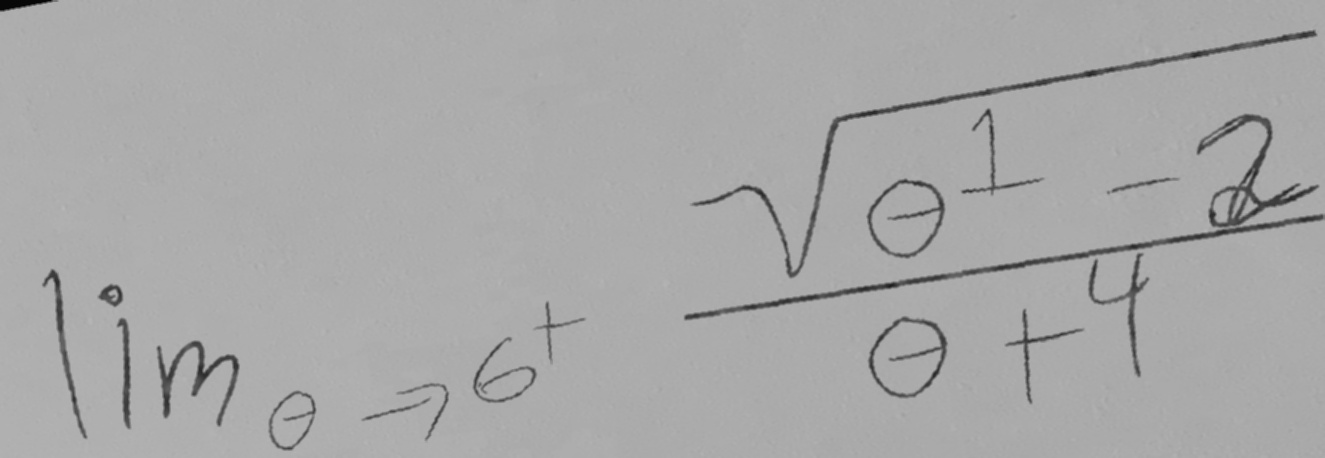 \lim_{\theta \to 6^+} \frac{\sqrt{\theta^1 - 2}}{\theta + 4}